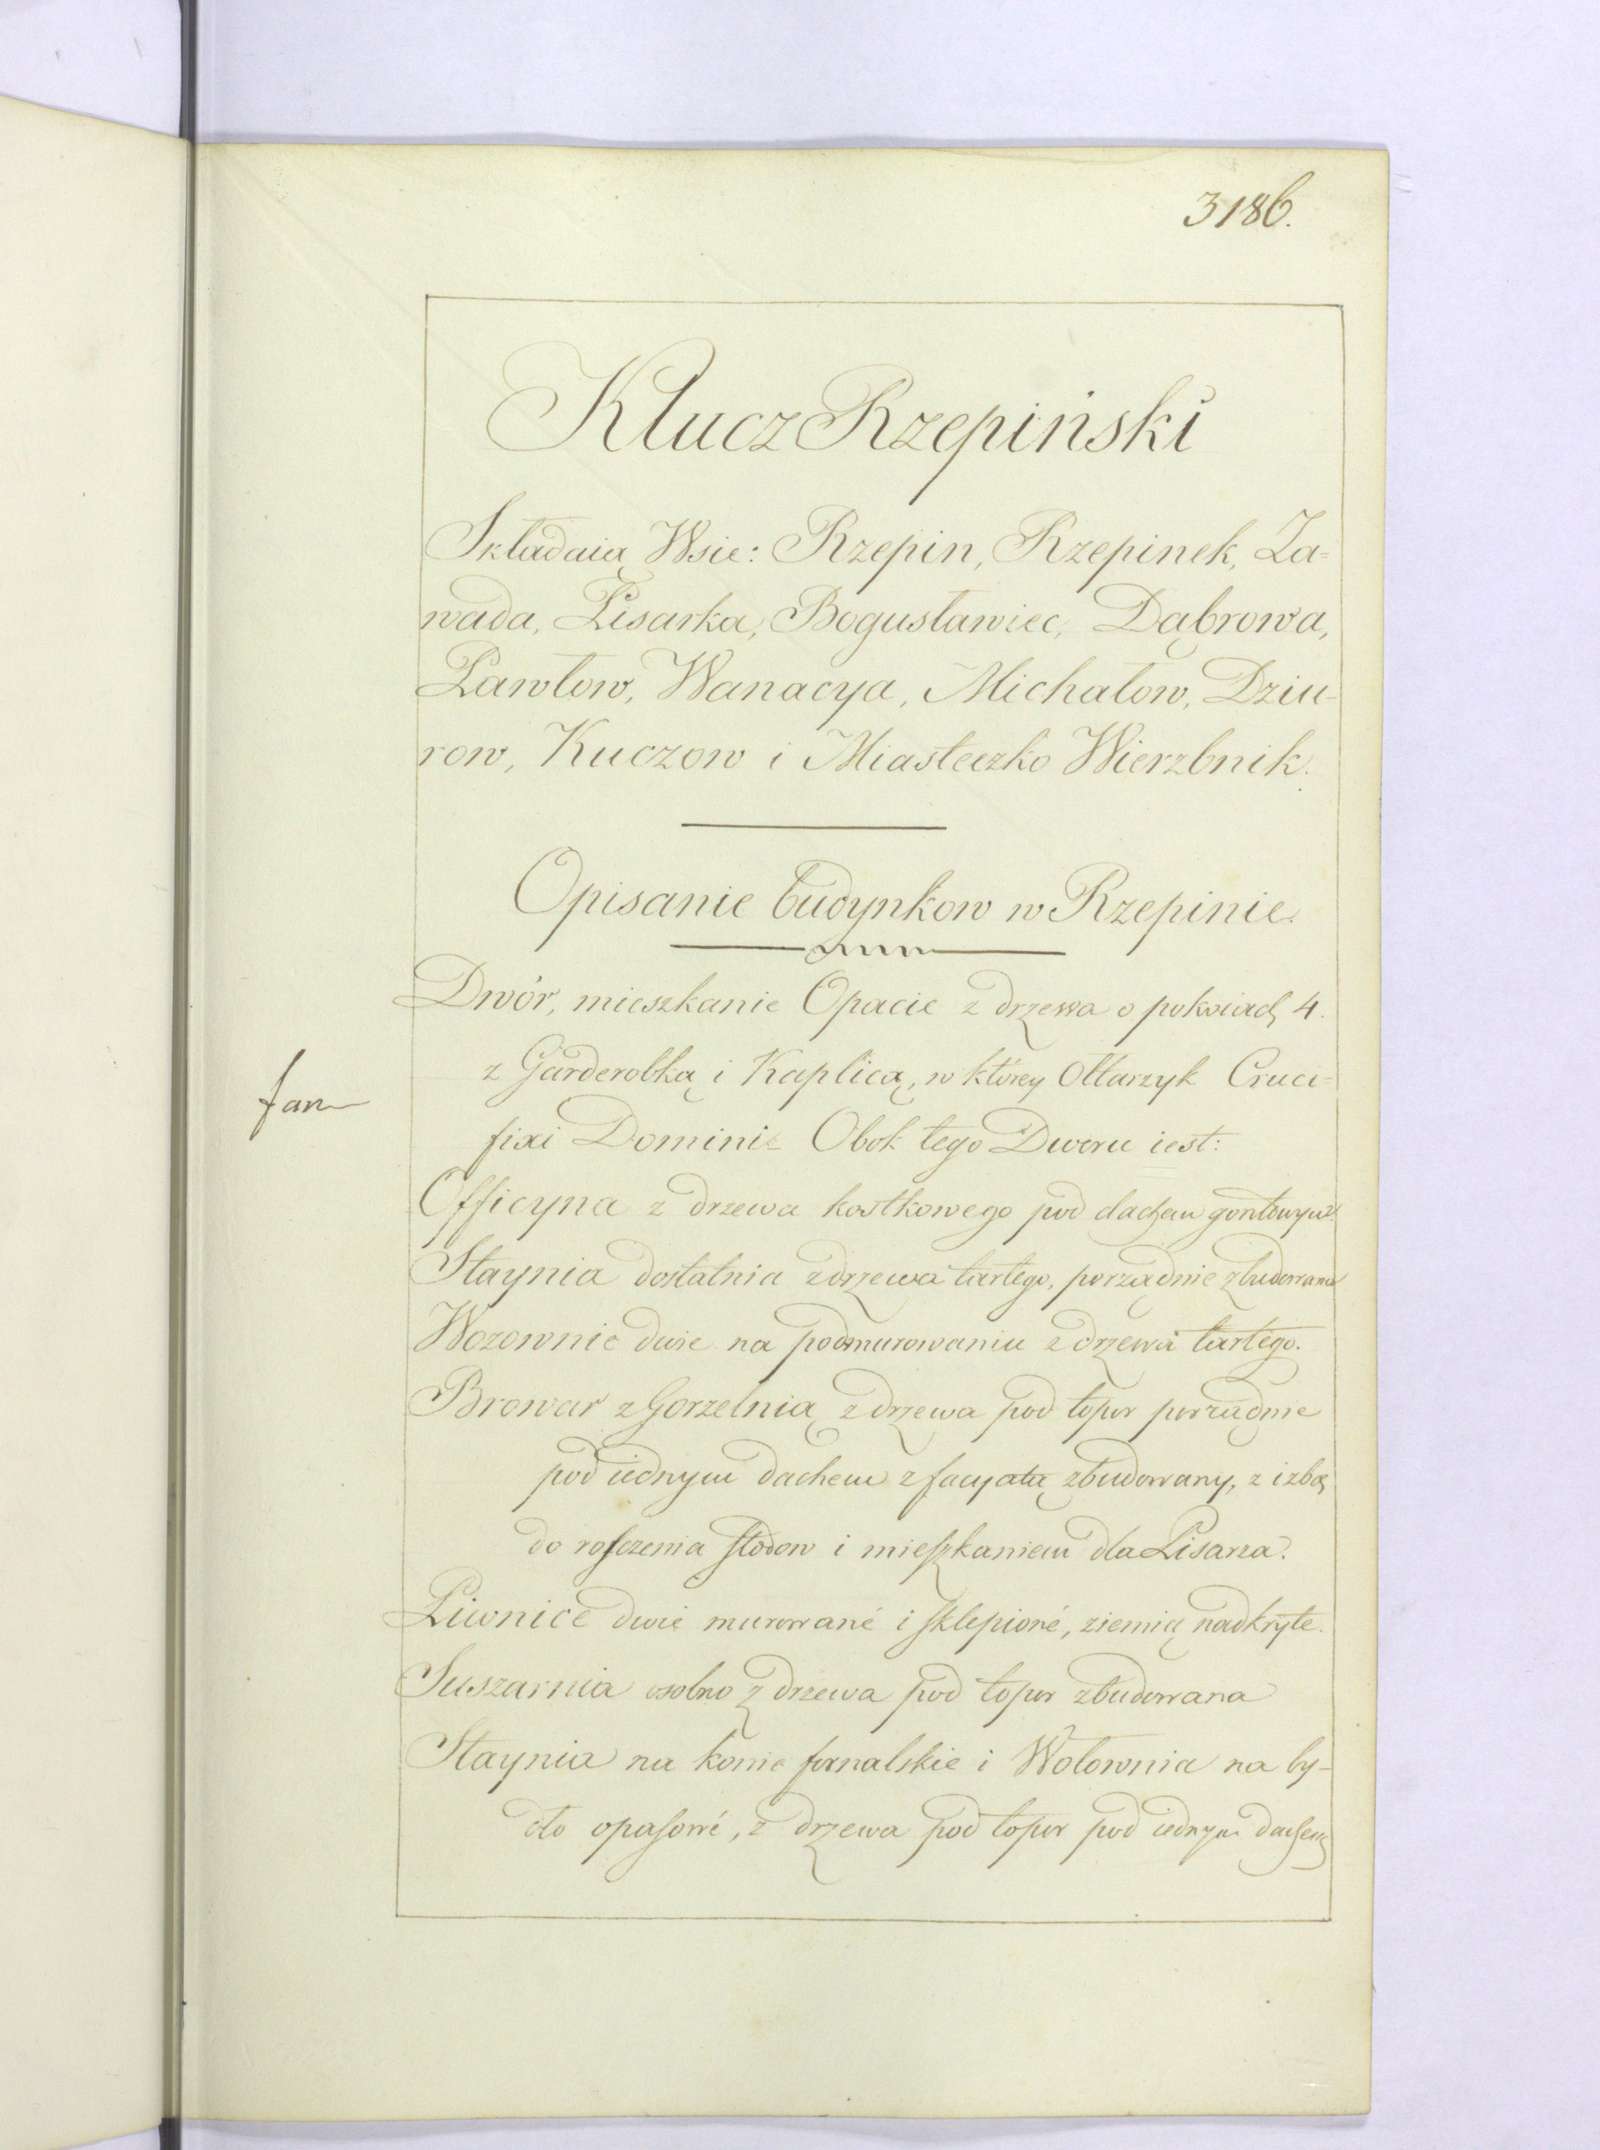 3186.
Klucz Rzepiński
Składaią Wsie: Rzepin, Rzepinek, Za=
wada, Pisarka, Bogusławiec, Dąbrowa,
Pawłow, Wanacya, Michałow, Dziu-
row, Kuczow i Miasteczko Wierzbnik.
Opisanie budynkow w Rzepinie.
Dwór, mieszkanie Opacie z drzewa o pokoiach 4.
z Garderobką i Kaplicą, w którey Ołtarzyk Cruci=
fixi Domini. Obok tego Dworu iest:
Officyna z drzewa kostkowego pod dachem gontowym.
Staynia dostatnia z drzewa tartego, porządnie zbudowana
Wozownie dwie na podmurowaniu z drzewa tartego.
Browar z Gorzelnią z drzewa pod topor porządnie
pod iednym dachem z facyatą zbudowany, z izbą
do rosczenia słodow i mieszkaniem dla Pisarza.
Piwnice dwie murowané i sklepioné, ziemią nadkryte.
Suszarnia osobno z drzewa pod topor zbudowana
Staynia na konie fornalskie i Wołownia na by-
dło opasowé, z drzewa pod topor pod iednym dachem